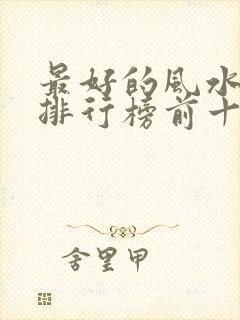 最好的風水
排行榜前十
舍里甲